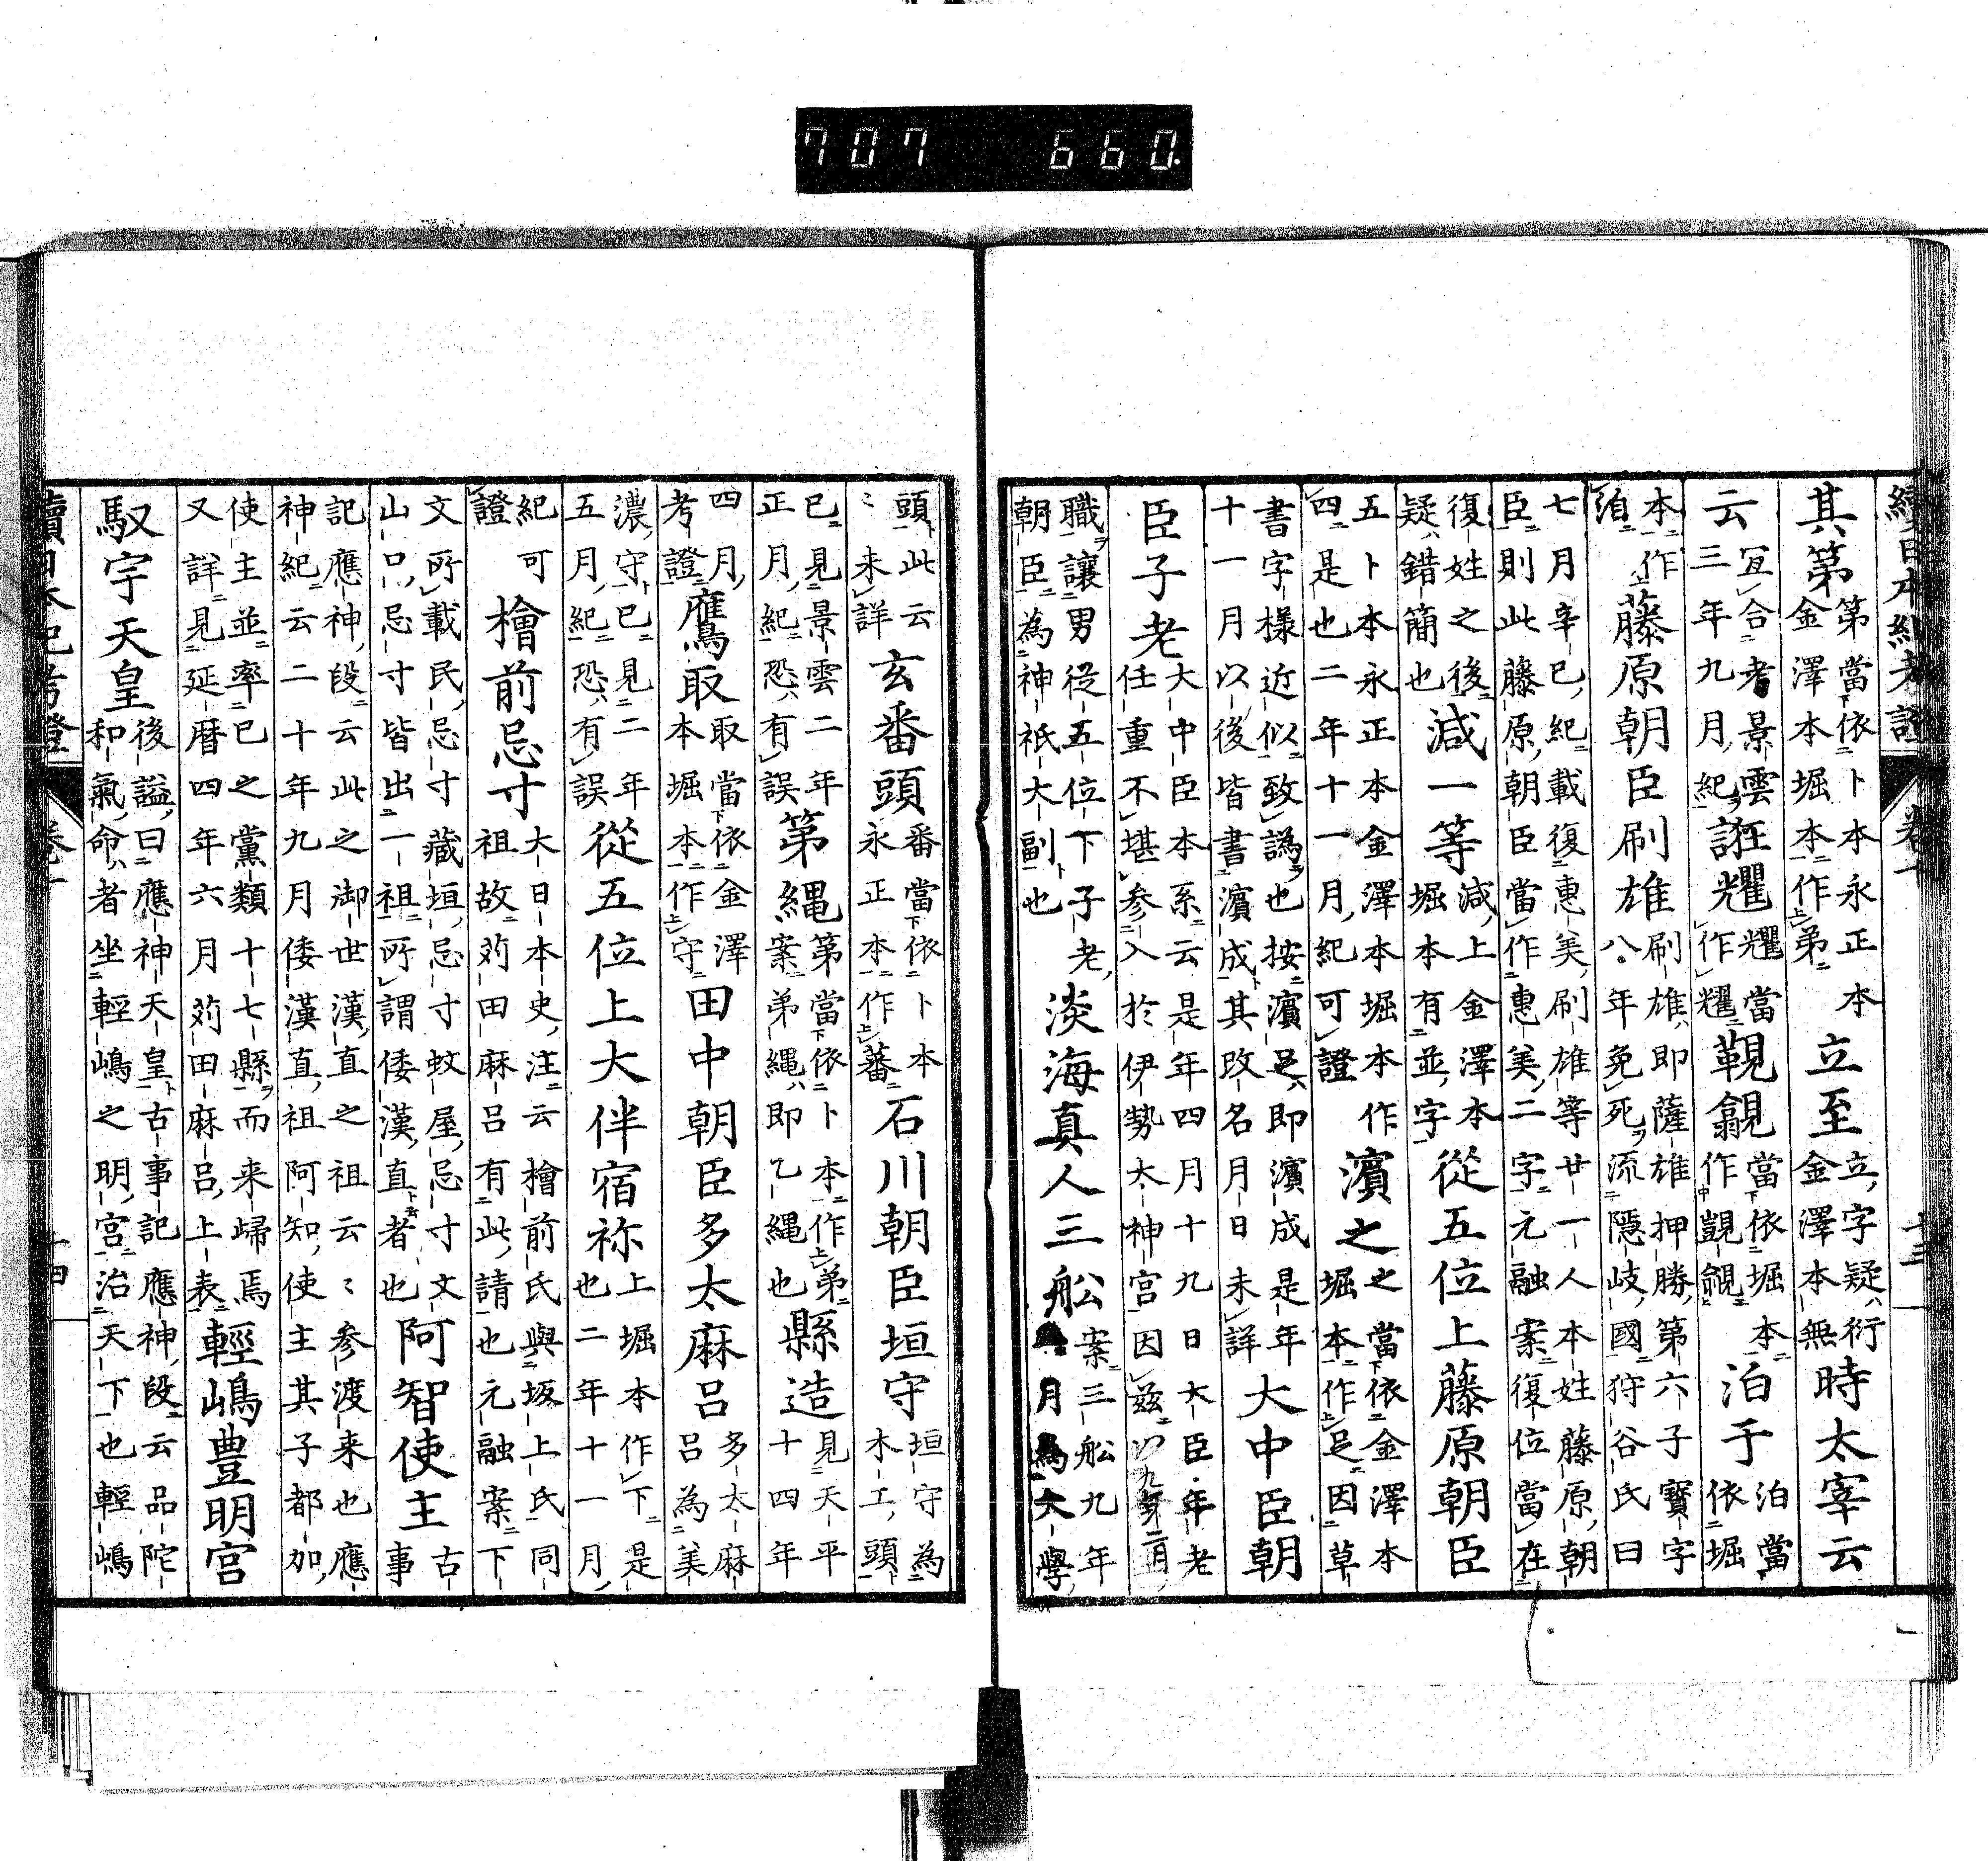 707 660.
續日本紀考證 卷十一 十三
其第 第當依卜本永正本 金澤本堀本作弟 立至 立字疑衍 金澤本無 時太宰云
云 宜合考景雲 三年九月紀 誑耀 耀當 作耀 覲覦 當依堀本 作覬覦 泊于 泊當 依堀
本作 洎 藤原朝臣刷雄 刷雄即薩雄押勝第六子寶字 八年免死流隱岐國狩谷氏曰
七月辛巳紀載復惠美刷雄等廿一人本姓藤原朝 臣則此藤原朝臣當作惠美二字元融案復位當在
復姓之後 疑錯簡也 減一等 減上金澤本 堀本有並字 從五位上藤原朝臣
五卜本永正本金澤本堀本作 四是也二年十一月紀可證 濱之 之當依金澤本 堀本作足因草
書字樣近似致譌也按濱足即濱成是年 十一月以後皆書濱成其改名月日未詳 大中臣朝
臣子老 大中臣本系云是年四月十九日大臣年老 任重不堪參入於伊勢太神宮因茲以九年二月
職讓男從五位下子老 朝臣為神祇大副也 淡海真人三船 案三船九年 月為大學
頭此云 〻未詳 玄番頭 番當依卜本 永正本作蕃 石川朝臣垣守 垣守為 木工頭
已見景雲二年 正月紀恐有誤 第縄 第當依卜本作弟 案弟縄即乙縄也 縣造 見天平 十四年
四月 考證 鷹取 取當依金澤 本堀本作守 田中朝臣多太麻呂 多太麻 呂為美
濃守已見二年 五月紀恐有誤 從五位上大伴宿祢 上堀本作下是 也二年十一月
紀可 證 檜前忌寸 大日本史注云檜前氏與坂上氏同 祖故苅田麻呂有此請也元融案下
文所載民忌寸藏垣忌寸蚊屋忌寸文 山口忌寸皆出一祖所謂倭漢直者也 阿智使主 古 事
記應神段云此之御世漢直之祖云〻參渡来也應 神紀云二十年九月倭漢直祖阿知使主其子都加
使主並率已之黨類十七縣而来歸焉 又詳見延曆四年六月苅田麻呂上表 輕嶋豊明宮
馭宇天皇 後謚曰應神天皇古事記應神段云品陀 和氣命者坐輕嶋之明宮治天下也輕嶋
續日本紀考證 卷十一 十四